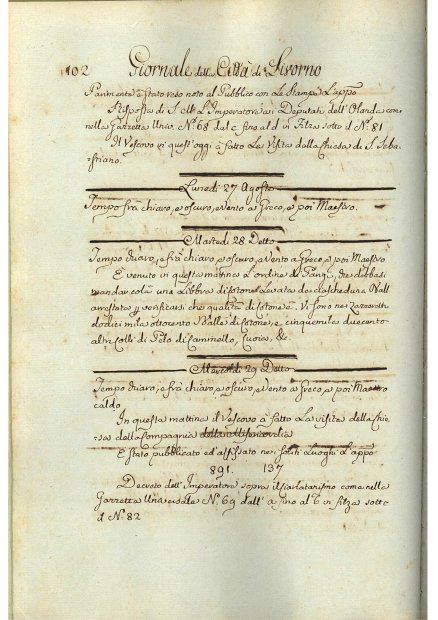 102 Giornale della Città di Livorno
Parimente è stato reso noto al Pubblico con Le Stampe L'appo
Risposta di S. M. L'Imperatore ai Deputati dell'Olanda come
nella Gazzetta Univ. N.° 68 dal c fino al d in Filza sotto il N.° 81
Il Vescovo in quest'oggi à fatto La Visita della Chiesa di S. Seba-
stiano.
Lunedì 27 Agosto
Tempo frà chiaro, e oscuro, e Vento a Greco, e poi Maestro.
Martedì 28 Detto
Tempo vario, e frà chiaro, e oscuro, e Vento a Greco e poi Maestro
È venuto in questa mattina L'ordine di
mandar colà una Libbra di Cotone Levata da ciascheduna Balla
arrestata p verificarsi che qualità di Cotone è. Vi sono nei Lazzeretti
dodici mila ottocento Balle di Cotone, e cinquemila duecento
altri Colli di Pelo di Cammello, Cuoia, &c.
Mercoldì 29 Detto
Tempo vario, e frà chiaro, e oscuro, e Vento a Greco, e poi Maestro
caldo
In questa mattina il Vescovo à fatto La visita della Chie-
sa della Compagnia della Misericordia
È stato pubblicato ed affissato nei soliti Luoghi L'appo
891. 137
Decreto dell'Imperatore sopra il come nella
Gazzetta Universale N.° 69 dall' a fino al b in filza sotto
il N.° 82